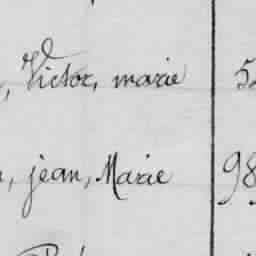 , Victor, marie 5
, jean, Marie 98